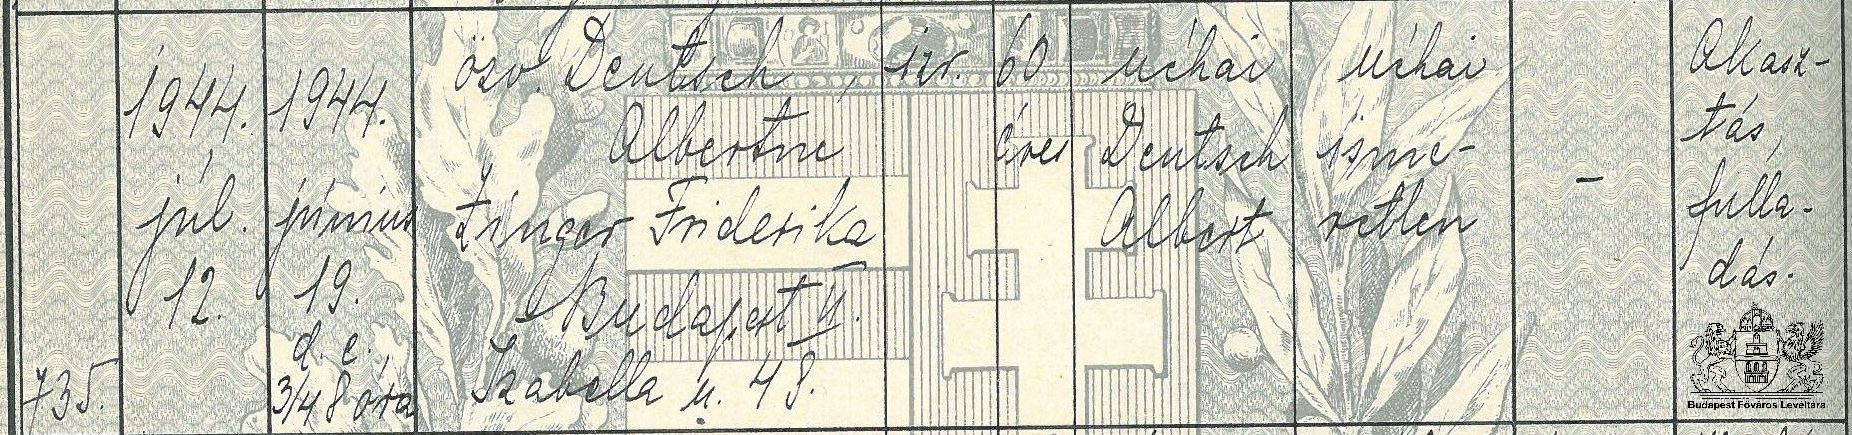 735.
1944.
júl.
12.
1944.
június
19.
d. e.
3/48 óra
özv. Deutsch
Albertné
Zinger Friderika
Budapest
Izabella u. 48.
izr.
60
éves
néhai
Deutsch
Albert
néhai
isme-
retlen
-
Akasz-
tás,
fulla-
dás.
Budapest Főváros Levéltára